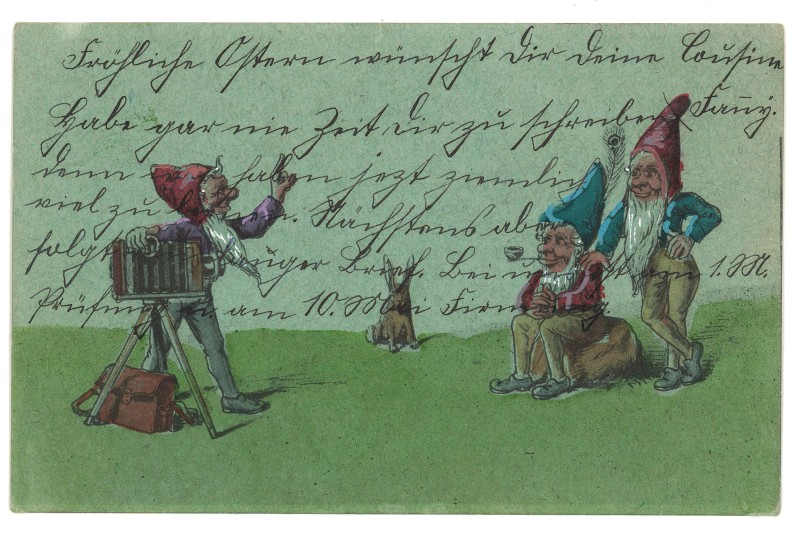 Fröhliche Ostern wünscht Dir deine Cousine
Habe gar nie Zeit Dir zu schreiben Fañy.
denn wir haben jezt ziemlich
viel zu lernen. Nächstens aber
folgt ein langer Brief. Bei uns ist am 1. M.
Prüfung u am 10. Mai Firmung.